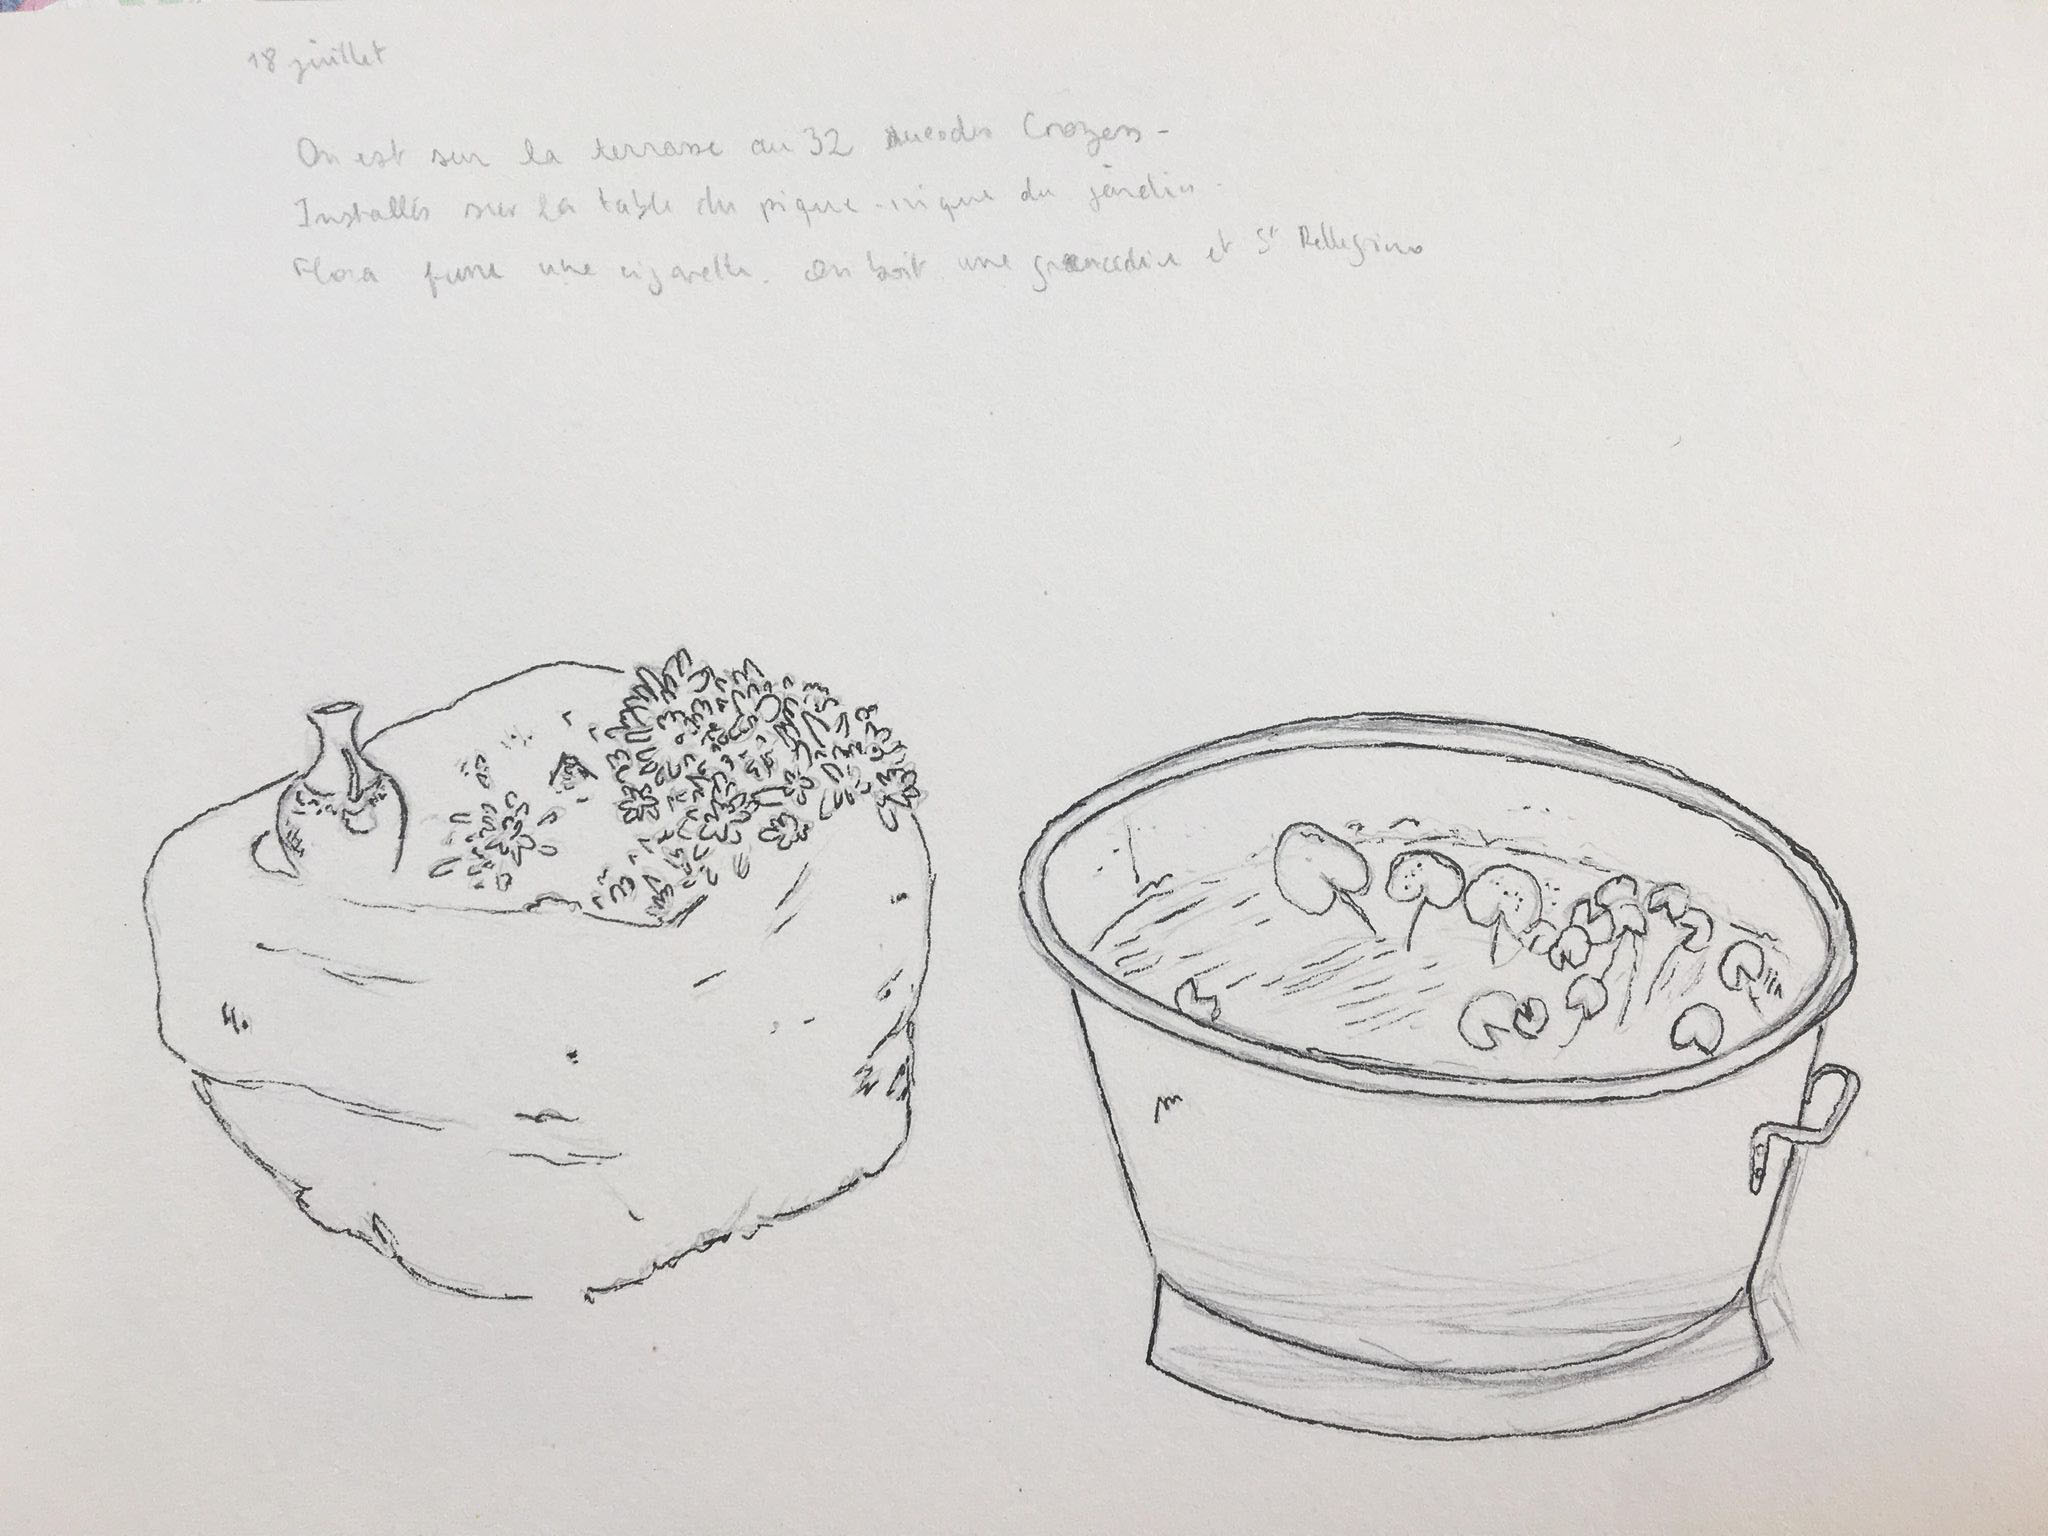 18 juillet
On est sur la terrasse au 32 rue des Crozes -
Installés sur la table du pique-nique du jardin.
Flora fume une cigarette. On boit une grenadine et St Pellegrino